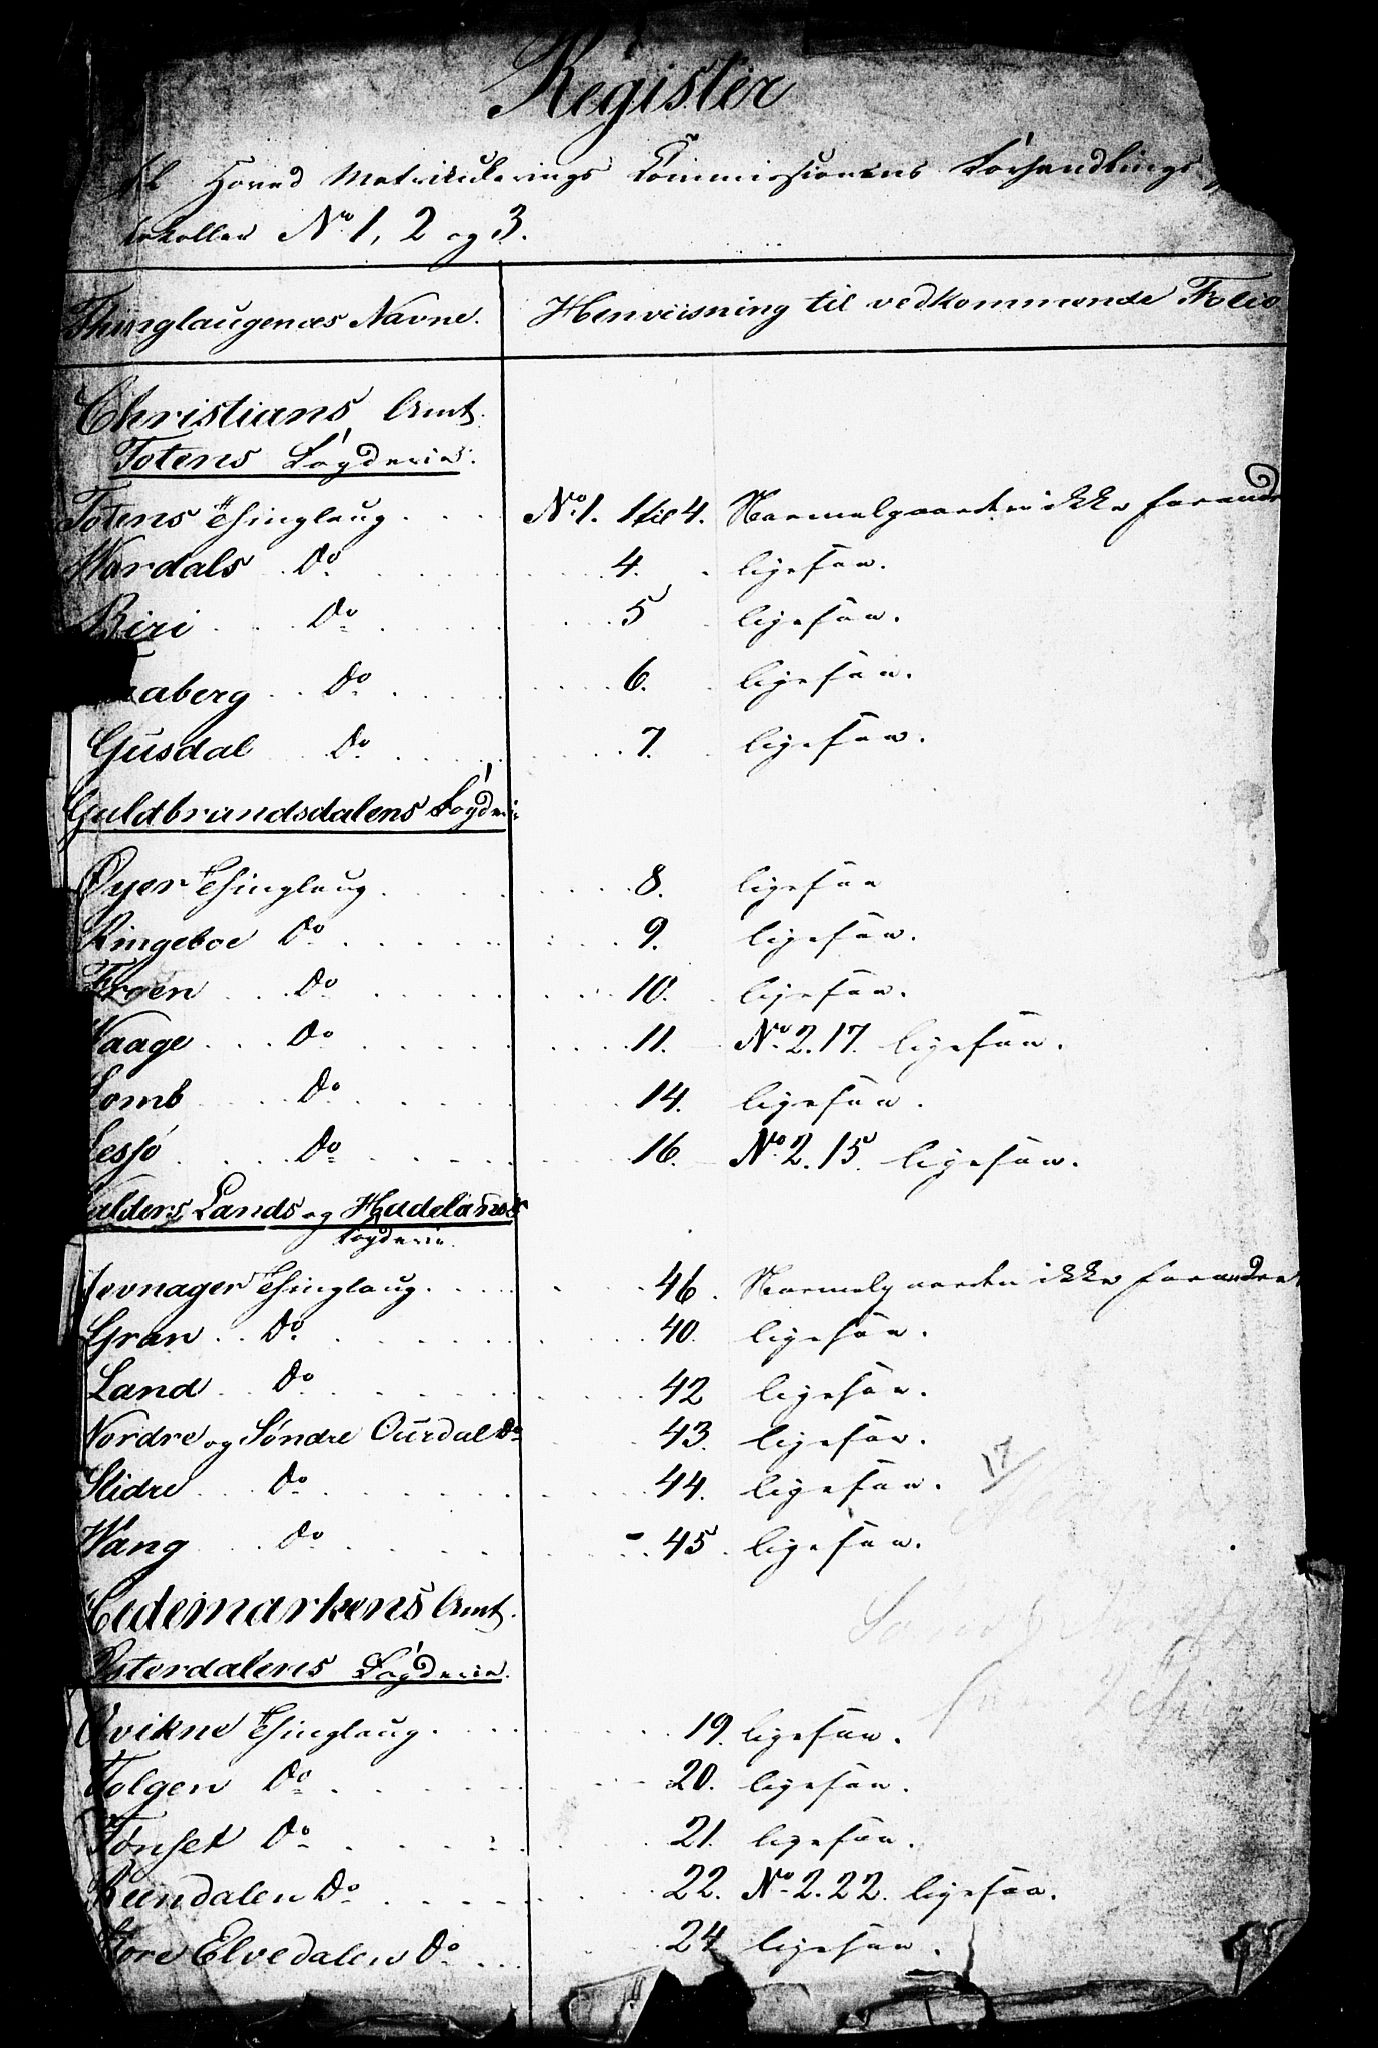 Register
til Hoved Matrikulerings Commissionens Forhandlings
tokoller No 1, 2 og 3.
Thinglaugenes Navne. Henviisning til vedkommende Folio
Christians Amt.
Totens Fogderie.
Totens Thinglaug . . . No 1. 1 til 4. Normalgaarden ikke forandr
Wardals Do . . . 4. ligesaa.
Biri Do . . . 5 ligesaa.
aaberg Do . . . 6. ligesaa.
Gusdal Do . . . 7. ligesaa.
Guldbrandsdalens Fogderie
Øyer Thinglaug . . . 8. ligesaa
Ringeboe Do . . . 9. ligesaa.
Froen Do . . . 10. ligesaa.
Waage Do . . . 11. No 2. 17. ligesaa.
Lomb Do . . . 14. ligesaa.
Lessø Do . . . 16. No 2. 15. ligesaa.
alders, Lands og Hadelands
Fogderie.
Jevnager Thinglaug . . . 46. Normalgaarden ikke forandret
Gran Do . . . 40. ligesaa.
Land Do . . . 42 ligesaa.
Nordre og Søndre Ourdal Do 43. ligesaa.
Slidre Do . . . 44. ligesaa.
17
Wang Do . . . 45. ligesaa.
Hedemarkens Amt.
Østerdalens Fogderie.
Qvikne Thinglaug . . . 19. ligesaa.
Tolgen Do . . . 20. ligesaa.
Tønset Do . . . 21. ligesaa.
Reendalen Do . . . 22. No 2. 22. ligesaa.
Store Elvedalen Do . . . 24 ligesaa.